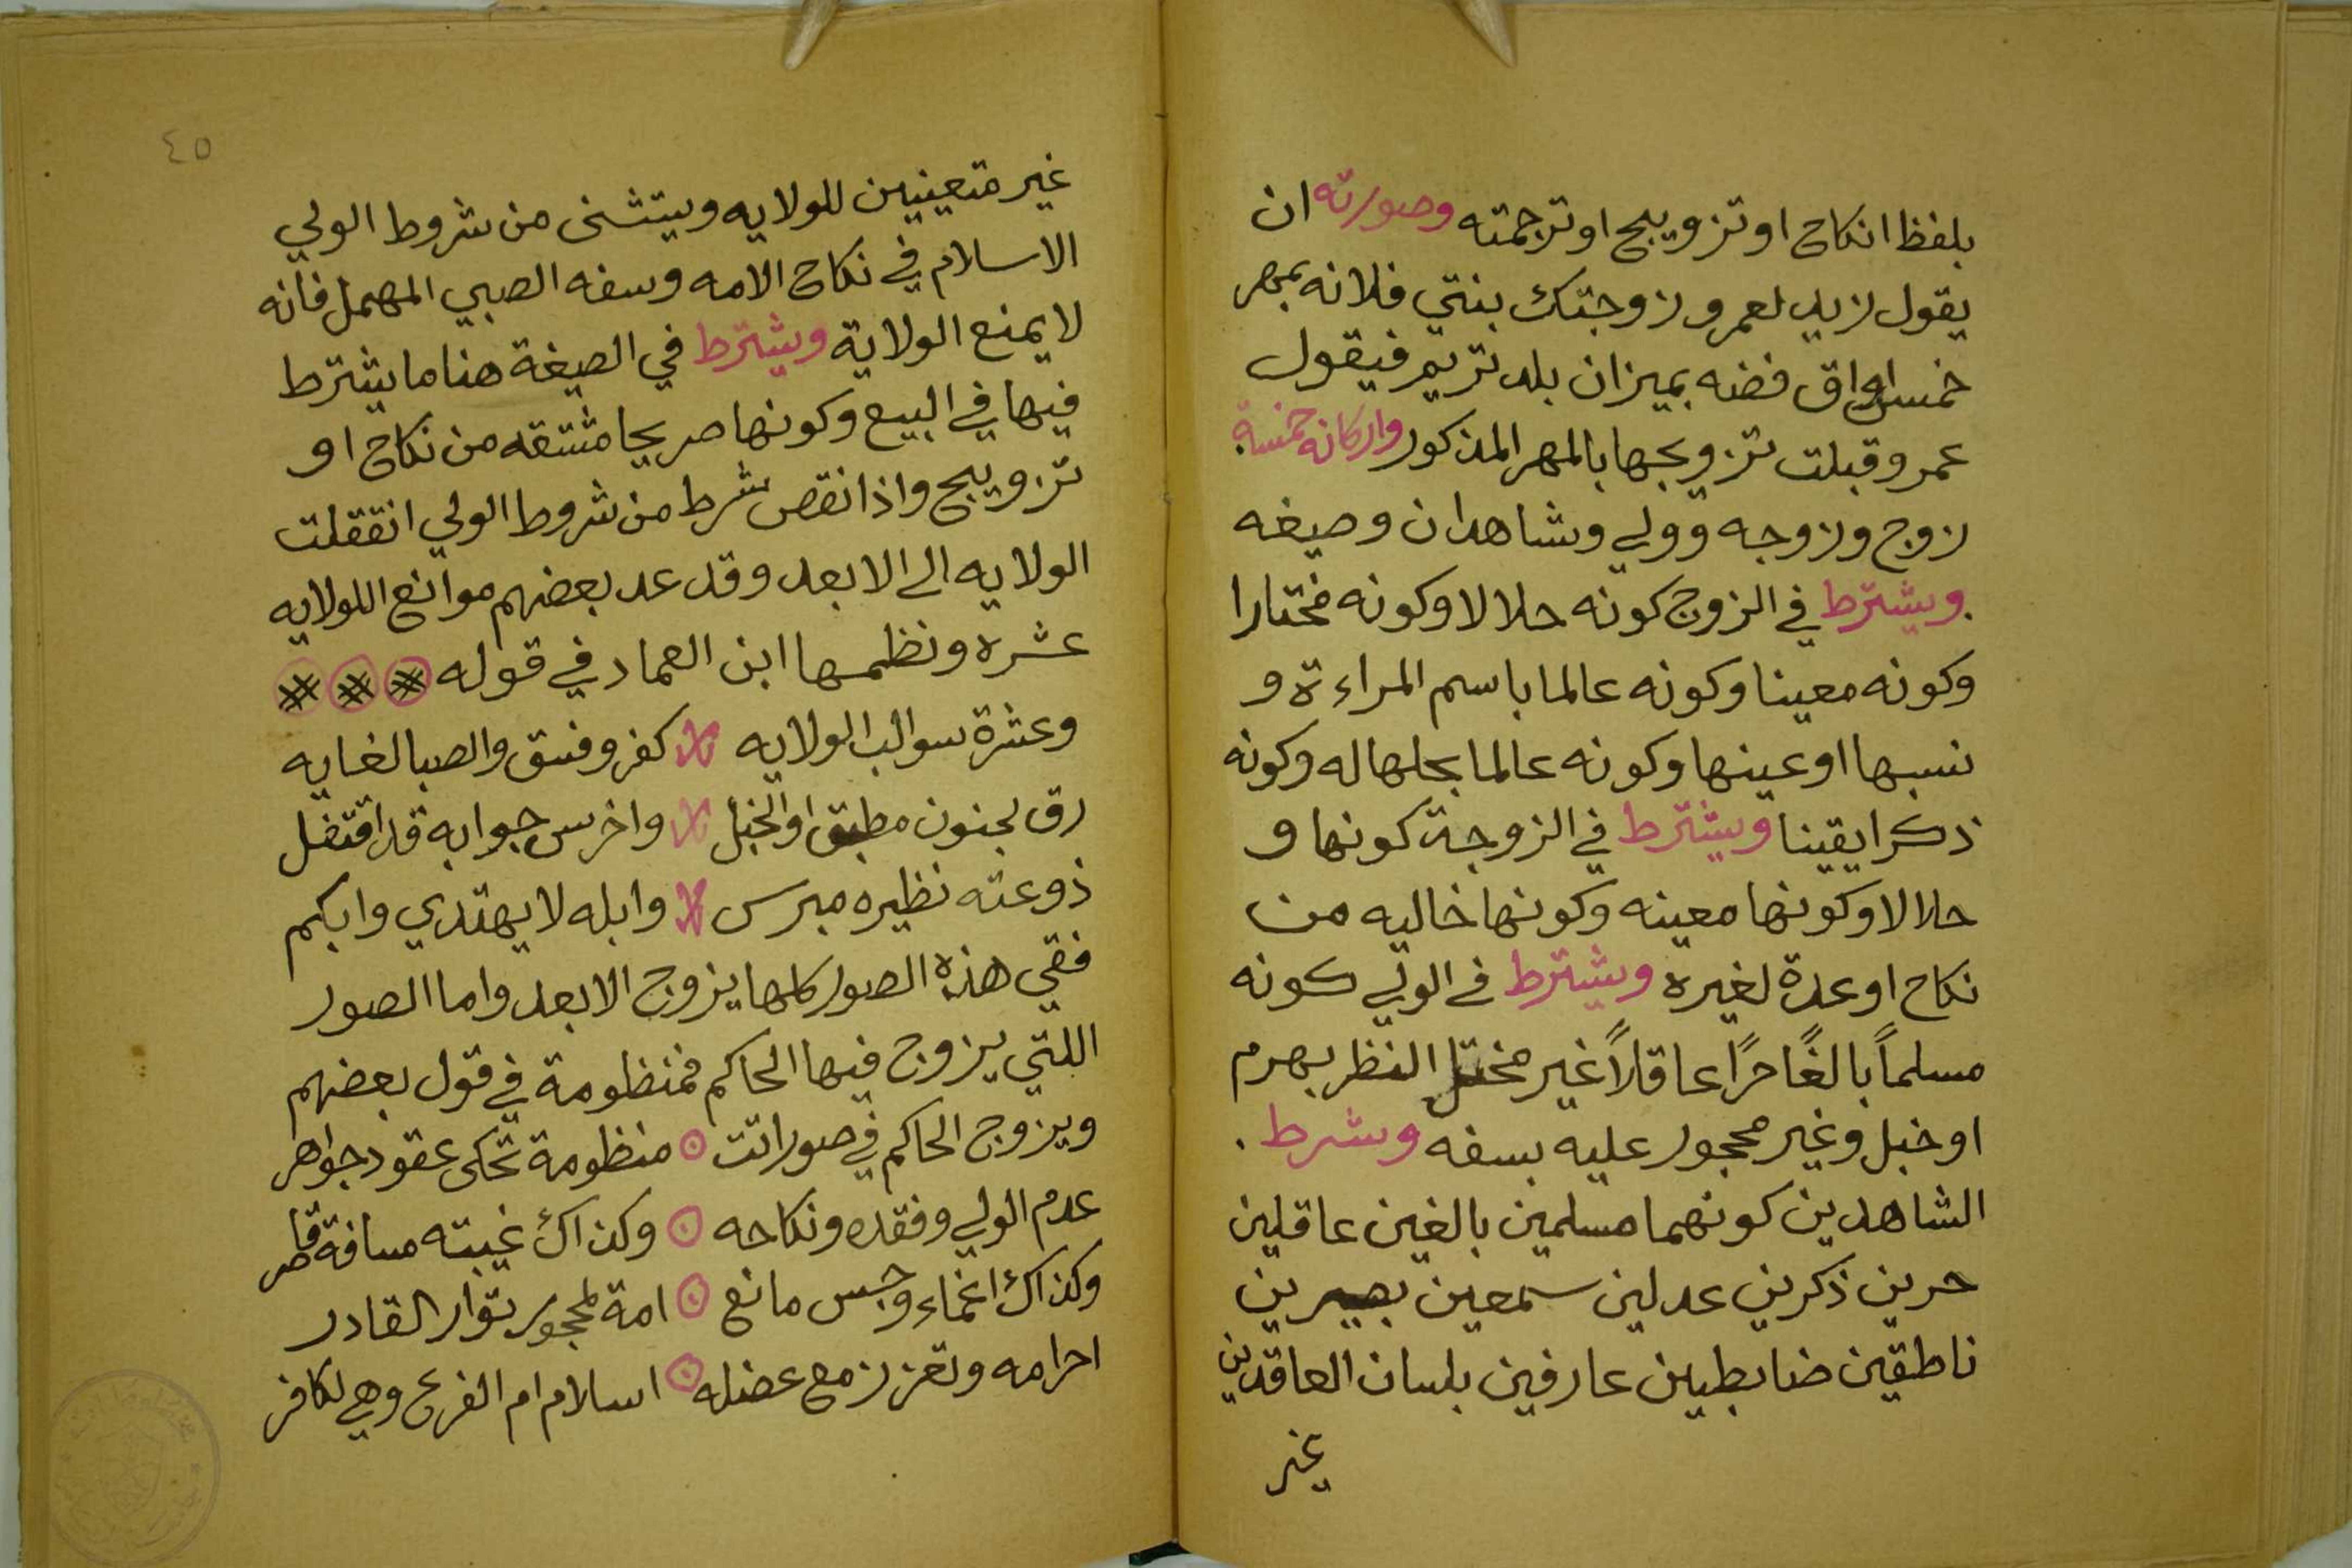 بلفظ انكاح او تزويج او ترجمته وصورته ان
يقول زيد لعمرو زوجتك بنتي فلانه بمهر
خمس اواق فضه بميزان بلد تريم فيقول
عمرو قبلت تزويجها بالمهر المذكور واركانه خمسة
زوج وزوجه وولي وشاهدان وصيغه
ويشترط في الزوج كونه حلالا وكونه مختارا
وكونه معينا وكونه عالما باسم المراءة و
نسبها او عينها وكونه عالما بحلها له وكونه
ذكرا يقينا ويشترط في الزوجة كونها و
حلالا وكونها معينه وكونها خاليه من
نكاح او عدة لغيره ويشترط في الولي كونه
مسلماً بالغًا حرًا عاقلاً غير مختل النظر بهرم
او خبل وغير محجور عليه بسفه وشرط .
الشاهدين كونهما مسلمين بالغين عاقلين
حرين ذكرين عدلين سمعين بصيرين
ناطقين ضابطين عارفين بلسان العاقدين
غير
٤٥
غير متعينين للولايه ويستثنى من شروط الولي
الاسلام في نكاح الامه وسفه الصبي المهمل فانه
لا يمنع الولاية ويشترط في الصيغة هنا ما يشترط
فيها في البيع وكونها صريحا مشتقه من نكاح او
تزويج واذا نقص شرط من شروط الولي انتقلت
الولايه الى الابعد وقد عد بعضهم موانع اللولايه
عشره ونظمها ابن العماد في قوله
وعشرة سوالب الولايه كفر وفسق والصبا لغايه
رق لجنون مطبق او الخبل واخرس جوابه قد اقتفل
ذو عته نظيره مبرس وابله لا يهتدي وابكم
ففي هذه الصور كلها يزوج الابعد واما الصور
اللتي يزوج فيها الحاكم فمنظومة في قول بعضهم
ويزوج الحاكم في صور اتت منظومة تحكى عقود جواهر
عدم الولي وفقده ونكاحه وكذاك غيبته مسافة قاصر
وكذاك اغماء وحبس مانع امة لمحجور توار القادر
احرامه وتعزز مع عضله اسلام ام الفرع وهي لكافر